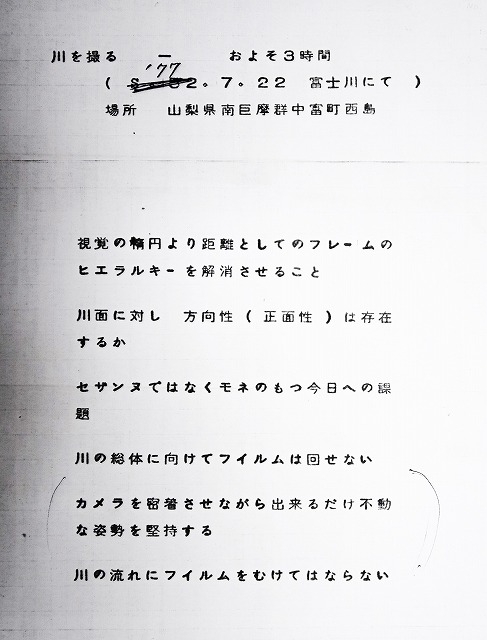 川を撮る　ー　　およそ3時間
'77
(　S. 52。7。22　富士川にて　)
場所　山梨県南巨摩群中富町西島
視覚の楕円より距離としてのフレームの
ヒエラルキーを解消させること
川面に対し　方向性(正面性)は存在
するか
セザンヌではなくモネのもつ今日への課
題
川の総体に向けてフイルムは回せない
カメラを密着させながら出来るだけ不動
な姿勢を堅持する
川の流れにフイルムをむけてはならない